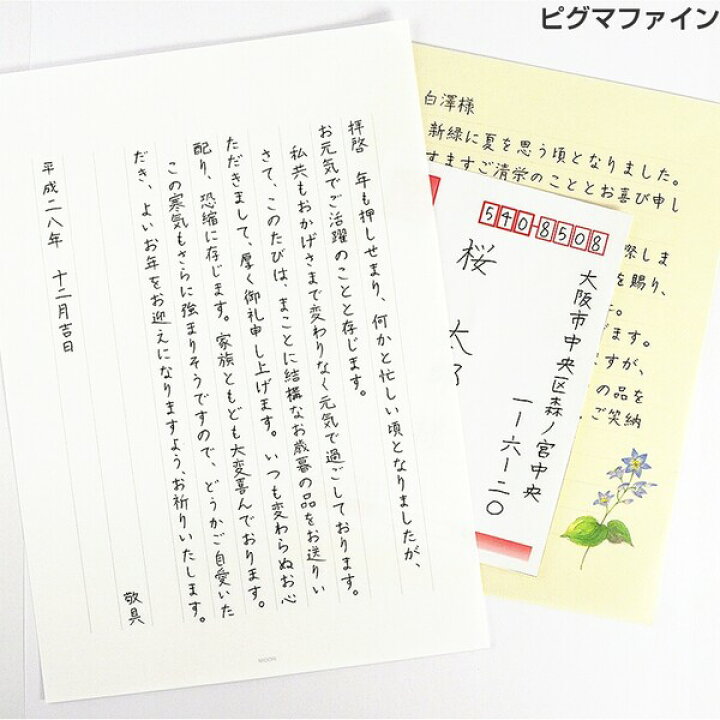 ピグマファイン
拝啓　年も押しせまり、何かと忙しい頃となりましたが、
お元気でご活躍のことと存じます。
私共もおかげさまで変わりなく元気で過ごしております。
さて、このたびは、まことに結構なお歳暮の品をお送りい
ただきまして、厚く御礼申し上げます。いつも変わらぬお心
配り、恐縮に存じます。家族ともども大変喜んでおります。
この寒気もさらに強まりそうですので、どうかご自愛いた
だき、よいお年をお迎えになりますよう、お祈りいたします。
敬具
平成二八年　十二月吉日
MIDORI
540-8508
大阪市中央区森ノ宮中央
一ー六ー二〇
桜　太
白澤様
新緑に夏を思う頃となりました。
すますご清栄のこととお喜び申し
察しま
を賜り、
た。
げます。
ますが、
の品を
ご笑納